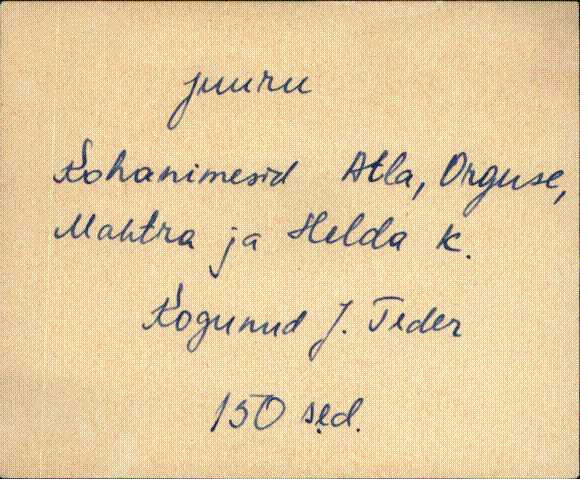 Juuru
Kohanimesid Atla, Orguse,
Mahtra ja Helda k.
Kogunud J. Teder
150 sed.